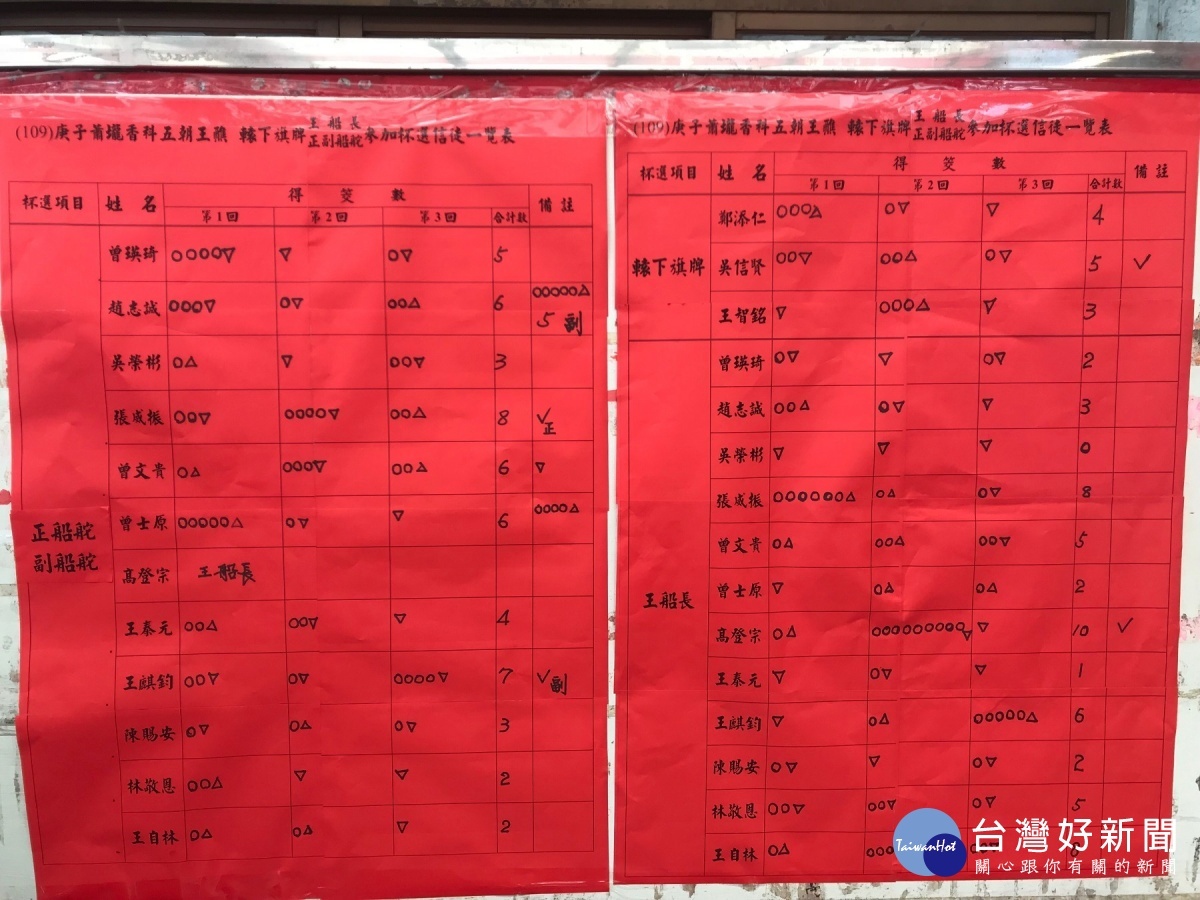 (109)庚子蕭壠香科五朝王醮 轅下旗牌 王船長 正副船舵 參加杯選信徒一覽表
杯選項目 姓名 得筊數 備註
第1回 第2回 第3回 合計數
正船舵
副船舵
曾瑛琦 ○○○○▽ ▽ ○▽ 5
趙志誠 ○○○▽ ○▽ ○○△ 6 ○○○○○△ 5 副
吳榮彬 ○△ ▽ ○○▽ 3
張成振 ○○▽ ○○○○▽ ○○△ 8 ✓正
曾文貴 ○△ ○○○▽ ○○△ 6 ▽
曾士原 ○○○○○△ ○▽ ▽ 6 ○○○○△
高登宗 王船長
王泰元 ○○△ ○○▽ ▽ 4
王麒鈞 ○○▽ ○▽ ○○○○▽ 7 ✓副
陳賜安 ○▽ ○△ ○▽ 3
林敬恩 ○○△ ▽ ▽ 2
王自林 ○△ ○△ ▽ 2
(109)庚子蕭壠香科五朝王醮 轅下旗牌 王船長 正副船舵 參加杯選信徒一覽表
杯選項目 姓名 得筊數 備註
第1回 第2回 第3回 合計數
轅下旗牌
鄭添仁 ○○○△ ○▽ ▽ 4
吳信賢 ○○▽ ○○△ ○▽ 5 ✓
王智銘 ▽ ○○○△ ▽ 3
王船長
曾瑛琦 ○▽ ▽ ○▽ 2
趙志誠 ○○△ ○▽ ▽ 3
吳榮彬 ▽ ▽ ▽ 0
張成振 ○○○○○○△ ○△ ○▽ 8
曾文貴 ○△ ○○△ ○○▽ 5
曾士原 ▽ ○△ ○△ 2
高登宗 ○△ ○○○○○○○○○▽ ▽ 10 ✓
王泰元 ▽ ○▽ ▽ 1
王麒鈞 ▽ ○△ ○○○○○△ 6
陳賜安 ○▽ ▽ ○▽ 2
林敬恩 ○○▽ ○○▽ ○▽ 5
王自林 ○△
TaiwanHot
台灣好新聞
關心跟你有關的新聞